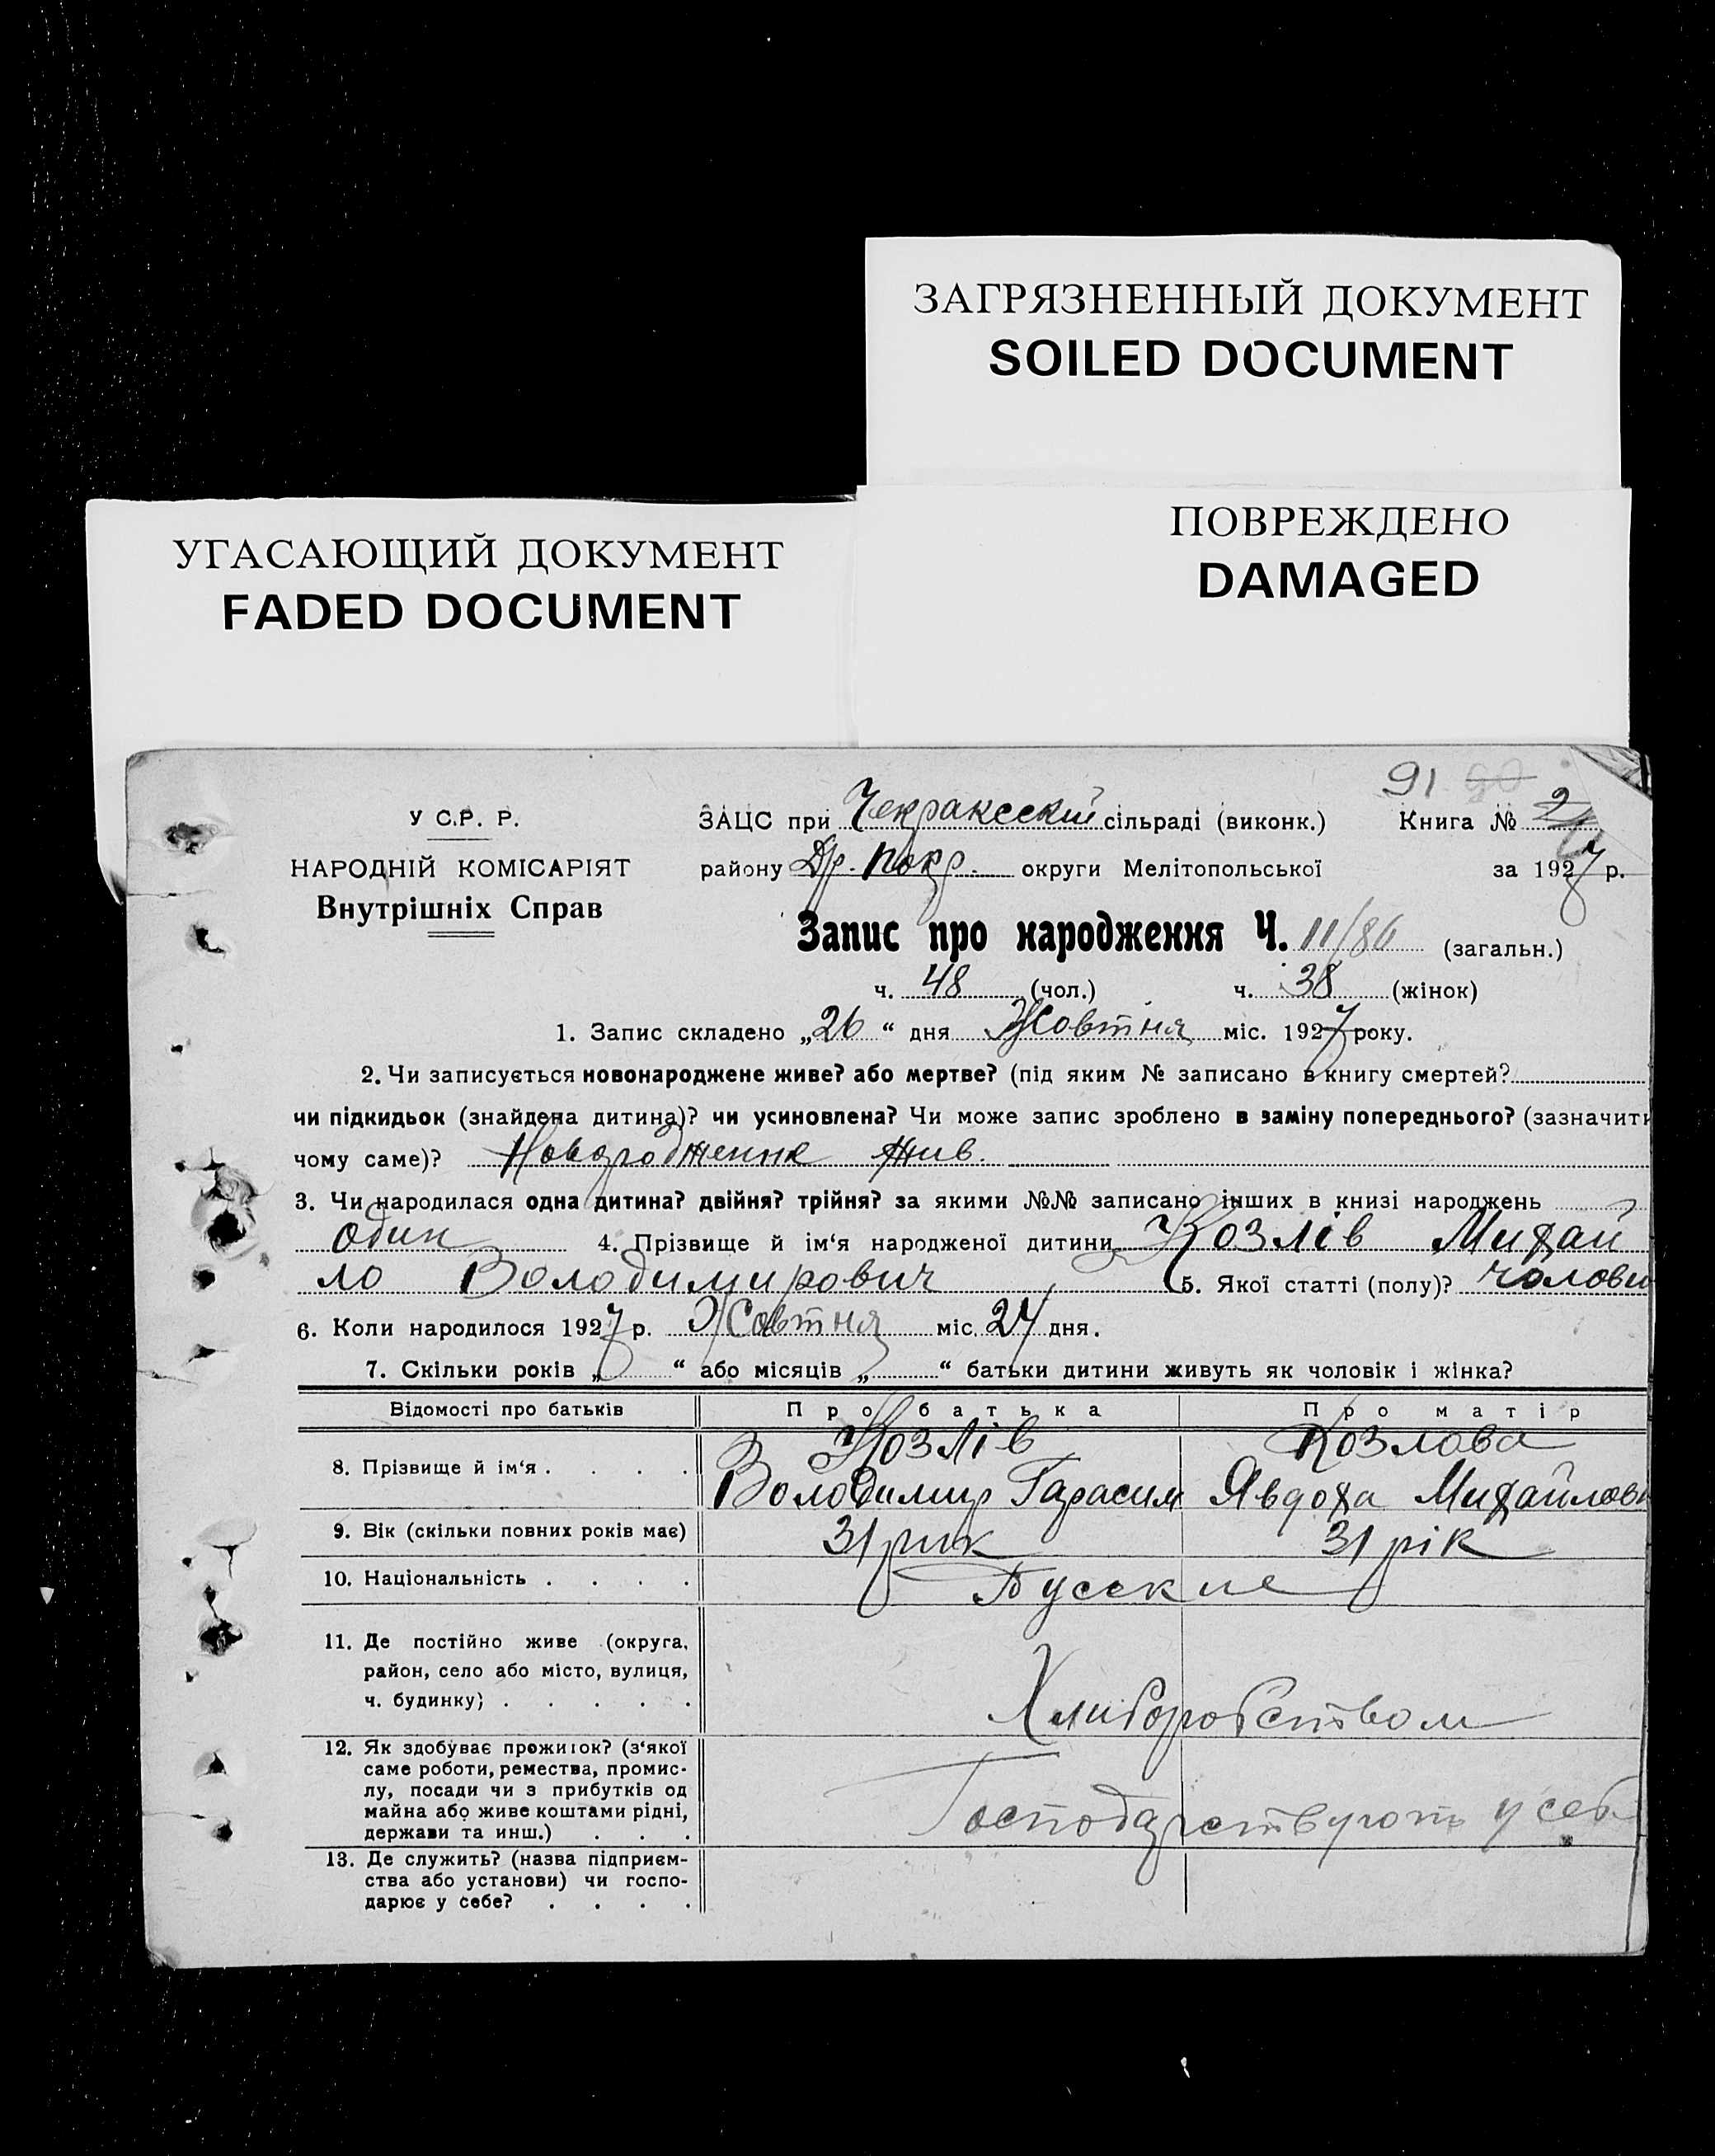 ЗАГРЯЗНЕННЫЙ ДОКУМЕНТ
SOILED DOCUMENT
УГАСАЮЩИЙ ДОКУМЕНТ
FADED DOCUMENT
ПОВРЕЖДЕНО
DAMAGED
91
У С.Р. Р.
НАРОДНІЙ КОМІСАРІЯТ
Внутрішніх Справ
ЗАЦС при сільраді (виконк.) Книга № 2
району Др. Покр. округи Мелітопольської за 1927 р.
Запис про народження Ч. 11/86 (загальн.)
ч. 48 (чол.) ч. 38 (жінок)
1. Запис складено „26“ дня Жовтня міс. 1927 року.
2. Чи записується новонароджене живе? або мертве? (під яким № записано в книгу смертей?
чи підкидьок (знайдена дитина)? чи усиновлена? Чи може запис зроблено в заміну попереднього? (зазначити
чому саме)? жив.
3. Чи народилася одна дитина? двійня? трійня? за якими №№ записано інших в книзі народжень
один 4. Прізвище й ім‘я народженої дитини Козлів Михай
ло Володимирович 5. Якої статті (полу)? чолови
6. Коли народилося 1927 р. Жовтня міс. 24 дня.
7. Скільки років „ “ або місяців „ “ батьки дитини живуть як чоловік і жінка?
Відомості про батьків Про батька Про матір
8. Прізвище й ім‘я . . . . Козлів Козлова
Володимир Гарасим Явдоха Михайлов
9. Вік (скільки повних років має) 31 рик 31 рік
10. Національність . . . . Русские
11. Де постійно живе (округа,
район, село або місто, вулиця,
ч. будинку) . . . . .
Хлиборобством
12. Як здобуває прожиток? (з‘якої
саме роботи, ремества, промис-
лу, посади чи з прибутків од
майна або живе коштами рідні,
держави та инш.) . . .
Господарствують у себ
13. Де служить? (назва підприєм-
ства або установи) чи госпо-
дарює у себе? . . . .